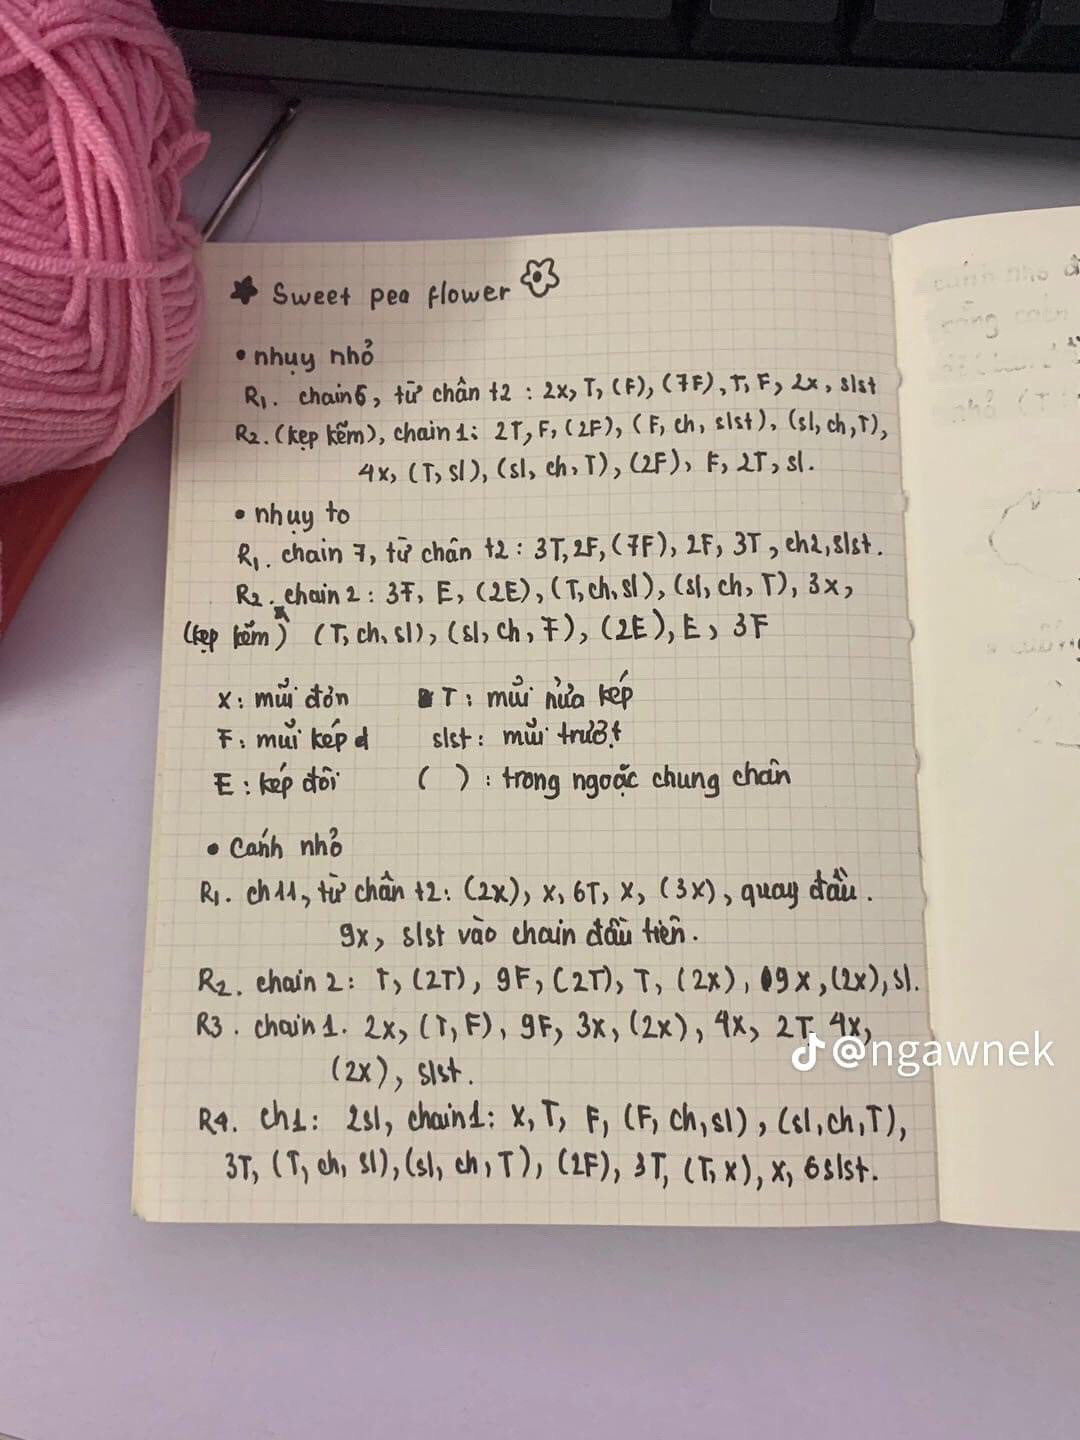 ★ Sweet pea flower
• nhụy nhỏ
R1. chain 6, từ chân t2 : 2x, T, (F), (7F), T, F, 2x, slst
R2. (kẹp kẽm), chain 1: 2T, F, (2F), (F, ch, slst), (sl, ch, T),
4x, (T, sl), (sl, ch, T), (2F), F, 2T, sl.
• nhụy to
R1. chain 7, từ chân t2 : 3T, 2F, (7F), 2F, 3T, ch2, slst.
R2. chain 2 : 3F, E, (2E), (T, ch, sl), (sl, ch, T), 3x,
(kẹp kẽm) (T, ch, sl), (sl, ch, F), (2E), E, 3F
X : mũi đơn T : mũi nửa kép
F : mũi kép đ slst : mũi trượt
E : kép đôi ( ) : trong ngoặc chung chân
• Cánh nhỏ
R1. ch11, từ chân t2: (2x), x, 6T, x, (3x), quay đầu.
9x, slst vào chain đầu tiên.
R2. chain 2: T, (2T), 9F, (2T), T, (2x), 9x, (2x), sl.
R3. chain 1. 2x, (T, F), 9F, 3x, (2x), 4x, 2T, 4x,
(2x), slst.
R4. ch1: 2sl, chain1: x, T, F, (F, ch, sl), (sl, ch, T),
3T, (T, ch, sl), (sl, ch, T), (2F), 3T, (T, x), x, 6slst.
@ngawnek